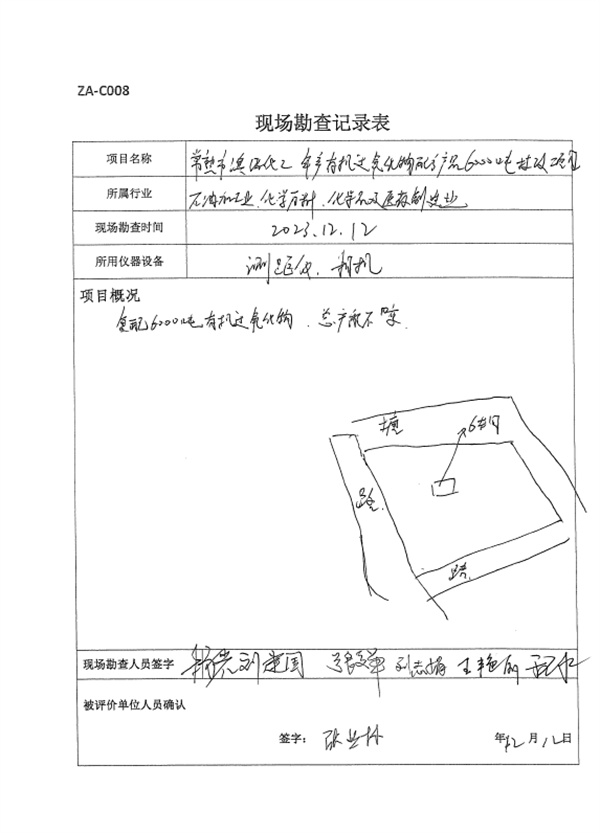 ZA-C008
现场勘查记录表
项目名称 常熟市滨江化工 年产有机过氧化物配方产品6000吨技改项目
所属行业 石油加工业、化学原料、化学品及医药制造业
现场勘查时间 2023.12.12
所用仪器设备 测距仪、相机
项目概况
复配6000吨有机过氧化物、总产能不变.
塘 6车间
路
路
现场勘查人员签字 刘建国 刘志娟 王艳丽
被评价单位人员确认
签字: 年12月12日